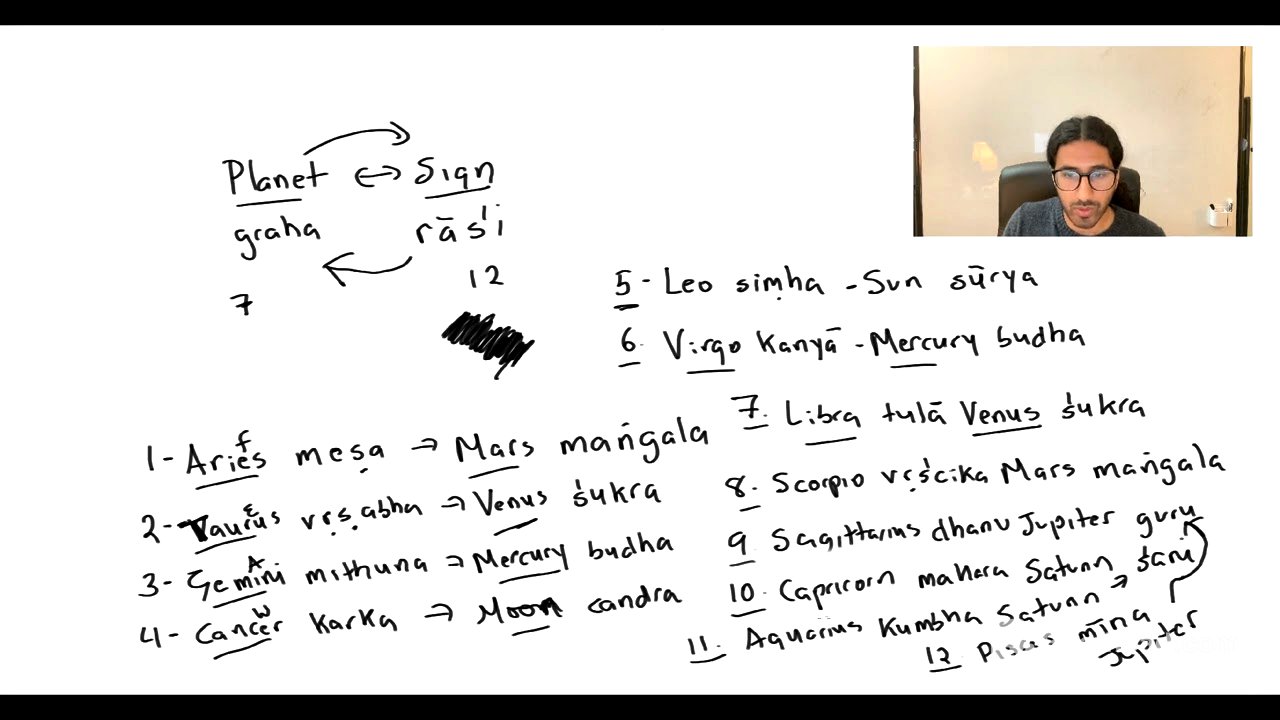 Planet ↔ Sign
graha rāśi
7 12
1 - Aries meṣa → Mars maṅgala
f
2 - Taurus vṛṣabha → Venus śukra
E
3 - Gemini mithuna → Mercury budha
A
4 - Cancer Karka → Moon candra
W
5 - Leo siṃha - Sun sūrya
6. Virgo Kanyā - Mercury budha
7. Libra tulā Venus śukra
8. Scorpio vṛścika Mars maṅgala
9 Sagittarius dhanu Jupiter guru
10. Capricorn makara Saturn śani
11. Aquarius Kumbha Saturn →
12 Pisces mīna
Jupiter